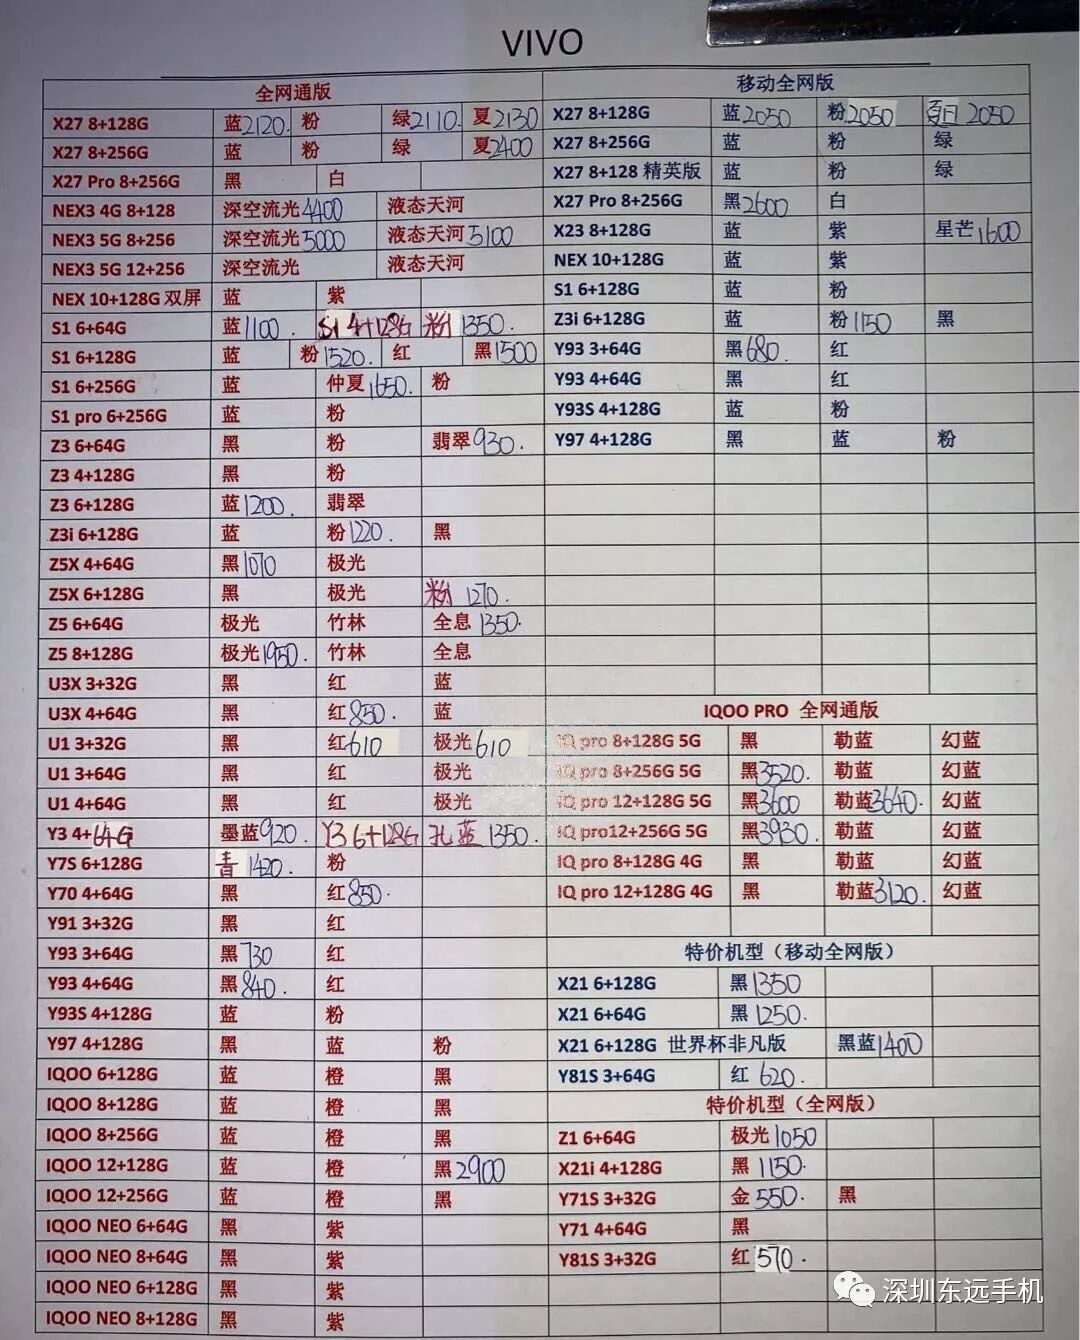 VIVO
全网通版
X27 8+128G 蓝2120. 粉 绿2110. 夏2130
X27 8+256G 蓝 粉 绿 夏2400
X27 Pro 8+256G 黑 白
NEX3 4G 8+128 深空流光4400 液态天河
NEX3 5G 8+256 深空流光5000 液态天河5100
NEX3 5G 12+256 深空流光 液态天河
NEX 10+128G 双屏 蓝 紫
S1 6+64G 蓝1100. S1 4+128G 粉1350.
S1 6+128G 蓝 粉1520. 红 黑1500
S1 6+256G 蓝 仲夏1650. 粉
S1 pro 6+256G 蓝 粉
Z3 6+64G 黑 粉 翡翠930.
Z3 4+128G 黑 粉
Z3 6+128G 蓝1200. 翡翠
Z3i 6+128G 蓝 粉1220. 黑
Z5X 4+64G 黑1070 极光
Z5X 6+128G 黑 极光 粉1270.
Z5 6+64G 极光 竹林 全息1350.
Z5 8+128G 极光1950. 竹林 全息
U3X 3+32G 黑 红 蓝
U3X 4+64G 黑 红850. 蓝
U1 3+32G 黑 红610 极光610
U1 3+64G 黑 红 极光
U1 4+64G 黑 红 极光
Y3 4+64G 墨蓝920. Y3 6+128G 孔蓝1350.
Y7S 6+128G 青1420. 粉
Y70 4+64G 黑 红850.
Y91 3+32G 黑 红
Y93 3+64G 黑730 红
Y93 4+64G 黑840. 红
Y93S 4+128G 蓝 粉
Y97 4+128G 黑 蓝 粉
IQOO 6+128G 蓝 橙 黑
IQOO 8+128G 蓝 橙 黑
IQOO 8+256G 蓝 橙 黑
IQOO 12+128G 蓝 橙 黑2900
IQOO 12+256G 蓝 橙 黑
IQOO NEO 6+64G 黑 紫
IQOO NEO 8+64G 黑 紫
IQOO NEO 6+128G 黑 紫
IQOO NEO 8+128G 黑 紫
移动全网版
X27 8+128G 蓝2050 粉2050 夏日2050
X27 8+256G 蓝 粉 绿
X27 8+128 精英版 蓝 粉 绿
X27 Pro 8+256G 黑2600 白
X23 8+128G 蓝 紫 星芒1600
NEX 10+128G 蓝 紫
S1 6+128G 蓝 粉
Z3i 6+128G 蓝 粉1150 黑
Y93 3+64G 黑680. 红
Y93 4+64G 黑 红
Y93S 4+128G 蓝 粉
Y97 4+128G 黑 蓝 粉
IQOO PRO 全网通版
IQ pro 8+128G 5G 黑 勒蓝 幻蓝
IQ pro 8+256G 5G 黑3520. 勒蓝 幻蓝
IQ pro 12+128G 5G 黑3600 勒蓝3640. 幻蓝
IQ pro12+256G 5G 黑3930. 勒蓝 幻蓝
IQ pro 8+128G 4G 黑 勒蓝 幻蓝
IQ pro 12+128G 4G 黑 勒蓝3120. 幻蓝
特价机型（移动全网版）
X21 6+128G 黑1350
X21 6+64G 黑1250.
X21 6+128G 世界杯非凡版 黑蓝1400
Y81S 3+64G 红620.
特价机型（全网版）
Z1 6+64G 极光1050
X21i 4+128G 黑1150.
Y71S 3+32G 金550. 黑
Y71 4+64G 黑
Y81S 3+32G 红570.
深圳东远手机